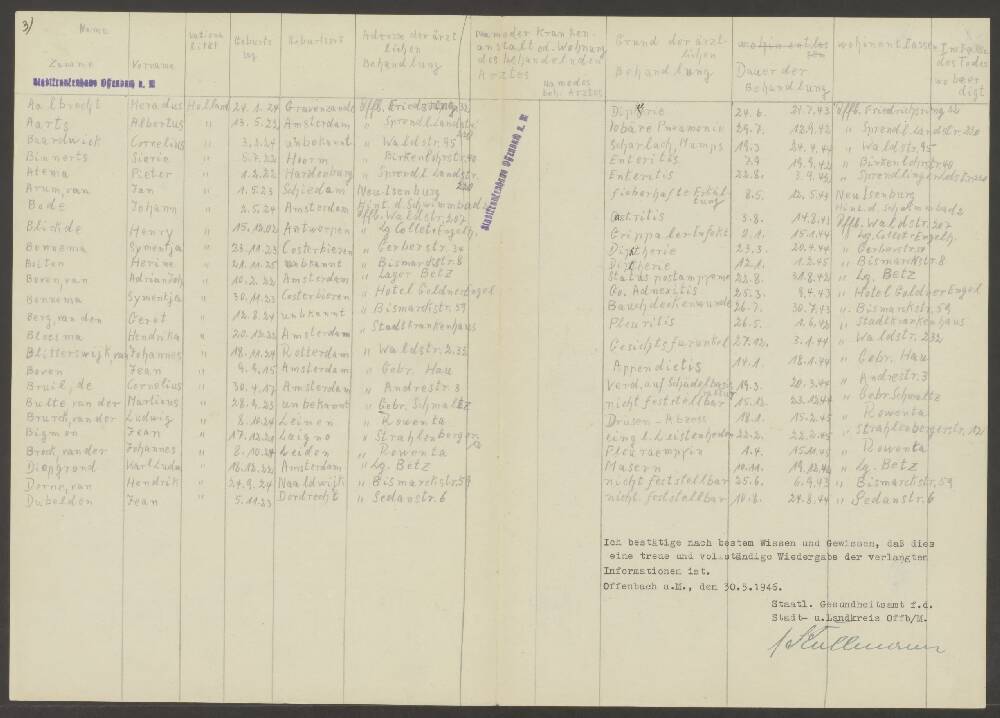 3/
Name Nationalität Geburtstag Geburtsort Adresse der ärztlichen Behandlung Name der Krankenanstalt od. Wohnung des behandelnden Arztes Grund der ärztlichen Behandlung Dauer der Behandlung wohin entlassen Im Falle des Todes wo beerdigt
Zuname Vorname Name des beh. Arztes
Stadtkrankenhaus Offenbach a. M
Stadtkrankenhaus Offenbach a. M
Aalbrecht Heradus Holland 24.1.24 Gravenzande Offb. Friedrichsring 32 Diptherie 24.6. 21.7.43 Offb. Friedrichsring 32
Aarts Albertus " 13.5.22 Amsterdam " Sprendl. Landstr. 220 lobare Pneumonie 29.7. 12.9.42 " Sprendl. Landstr. 220
Baardwick Cornelius " 3.2.24 unbekannt " Waldstr. 95 Scharlach, Mumps 19.3 24.4.44 " Waldstr. 95
Binnerts Sierin " 5.7.22 Hoorm " Birkenlohrstr. 40 Enteritis 7.9 19.9.42 " Birkenlohrstr. 40
Atema Pieter " 1.2.22 Hardenburg " Sprendl. Landstr. 220 Enteritis 22.8. 3.9.43 " Sprendlingerlandstr. 220
Arum, van Jan " 1.5.23 Schiedam Neu Isenburg fieberhafte Erkältung 8.5. 12.5.44 Neu Isenburg
Bode Johann " 2.5.24 Amsterdam Hint. d. Schwimmbad 2 Hint. d. Schwimmbad 2
Offb. Waldstr. 207 Gastritis 3.8. 14.8.43 Offb. Waldstr. 207
Blickde Henry " 15.12.02 Antworpen " Lg. Collet+Engelh. Grippaler Infekt 2.1. 15.1.44 " Lg. Collet+Engelh.
Bonnema Symentja " 23.11.23 Oosterbieren " Gerberstr. 30 Diptherie 23.3. 20.4.44 " Gerberstr. 30
Boiten Herine " 21.11.25 unbekannt " Bismarckstr. 8 Diptherie 12.1. 1.2.45 " Bismarckstr. 8
Boven, van Adrian Joh " 10.2.22 Amsterdam " Lager Betz Status postamppeme 22.8. 31.8.42 " Lg. Betz
Bonnema Symentja " 30.11.23 Oosterbieren " Hotel Goldner Engel Go. Adnexitis 25.3. 9.4.43 " Hotel Goldner Engel
Berg, van den Gerot " 12.8.24 unbekannt " Bismarckstr. 59 Bauchdeckenwunde 26.7. 30.7.43 " Bismarckstr. 59
Bloosma Hendrika " 20.12.22 Amsterdam " Stadtkrankenhaus Pleuritis 26.5. 1.6.42 " Stadtkrankenhaus
Blitterswijk, van Johannes " 18.11.24 Rotterdam " Waldstr. 232 Gesichtsfurunkel 27.12. 3.1.44 " Waldstr. 232
Boven Jean " 9.9.15 Amsterdam " Gebr. Hau Appendietis 14.1. 18.1.44 " Gebr. Hau
Bruil, de Cornelius " 30.4.17 Amsterdam " Andrestr. 3 Verd. auf Schädelbasisfraktur 19.3. 20.3.44 " Andrestr. 3
Bulte van der Martinus " 28.4.23 unbekannt " Gebr. Schmaltz nicht feststellbar 15.12. 23.12.44 " Gebr. Schmaltz
Brurck, van der Ludwig " 8.10.24 Leinen " Rowenta Drüsen-Abzess 18.1. 15.2.45 " Rowenta
Bigmon Jean " 17.12.20 Laigno " Strahlenberger. 12 eing. l. Leistenhoden 22.2. 22.2.45 " Strahlenbergerstr. 12
Brock, van der Johannes " 8.10.24 Leiden " Rowenta Pleuraempfin 1.4. 15.11.45 " Rowenta
Diepgrond Karl Ludw " 16.12.22 Amsterdam " Lg. Betz Masern 10.11. 19.12.42 " Lg. Betz
Dorne, van Hendrik " 24.9.24 Naaldwijk " Bismarckstr. 59 nicht feststellbar 25.6. 6.9.43 " Bismarckstr. 59
Dubeldon Jean " 5.11.23 Dordrecht " Sedanstr. 6 nicht feststellbar 10.8. 24.8.44 " Sedanstr. 6
Ich bestätige nach bestem Wissen und Gewissen, daß dies
eine treue und vollständige Wiedergabe der verlangten
Informationen ist.
Offenbach a.M., den 30.5.1946.
Staatl. Gesundheitsamt f.d.
Stadt- u.Landkreis Offb/M.